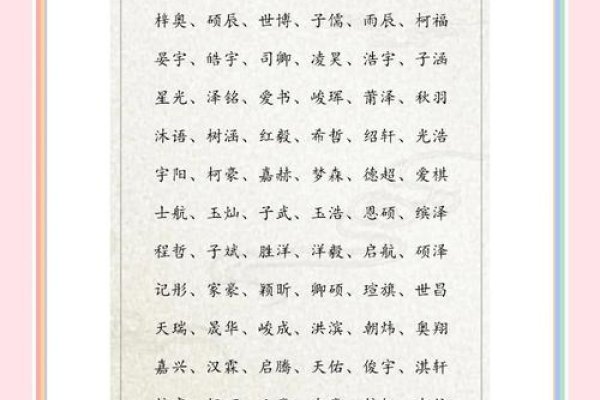 梓奥、硕辰、世博、子儒、雨辰、柯福
晏宇、皓宇、司卿、凌昊、浩宇、子涵
星光、泽铭、爱书、峻珲、莆泽、秋羽
沐语、树涵、红毅、希哲、绍轩、光浩
宇阳、柯豪、嘉赫、梦森、德超、爱棋
士航、玉灿、子武、玉浩、恩硕、缤泽
程哲、子斌、胜洋、洋毅、启航、硕泽
记彤、家豪、颖昕、卿硕、瑄旗、世昌
天瑞、晟华、峻成、洪滨、朝炜、奥翔
嘉兴、汉霖、启腾、天佑、俊宇、淇轩